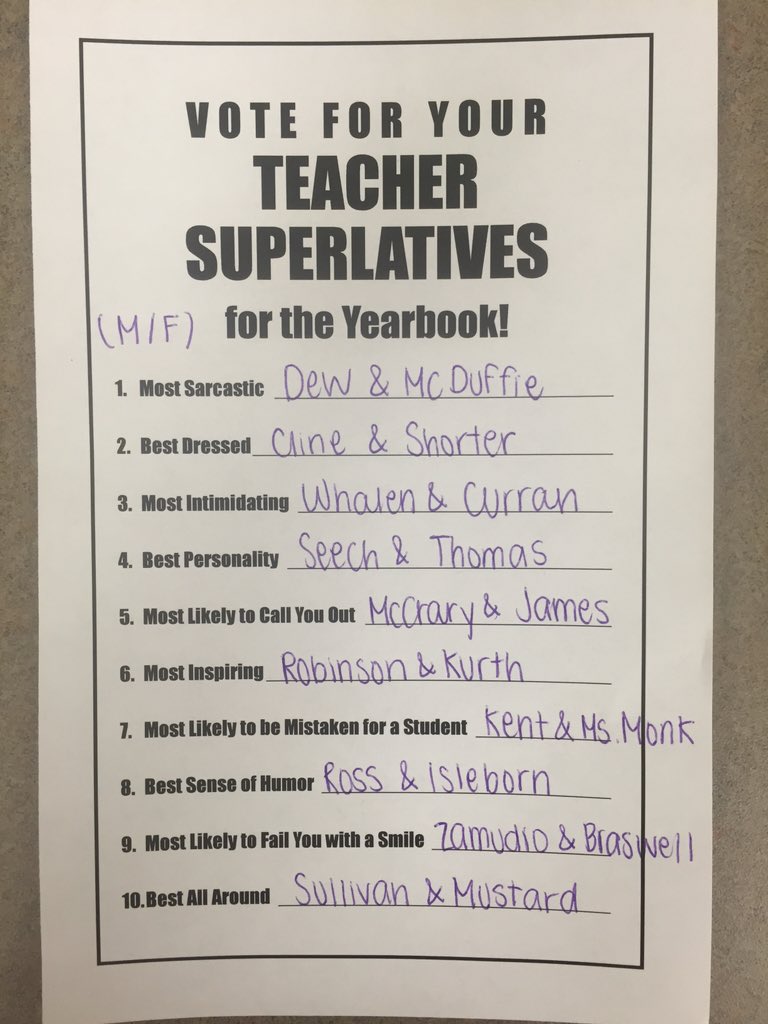 VOTE FOR YOUR
TEACHER
SUPERLATIVES
(M/F) for the Yearbook!
1. Most Sarcastic Dew & McDuffie
2. Best Dressed Cline & Shorter
3. Most Intimidating Whalen & Curran
4. Best Personality Seech & Thomas
5. Most Likely to Call You Out McCrary & James
6. Most Inspiring Robinson & Kurth
7. Most Likely to be Mistaken for a Student Kent & Ms. Monk
8. Best Sense of Humor Ross & isleborn
9. Most Likely to Fail You with a Smile Zamudio & Braswell
10. Best All Around Sullivan & Mustard